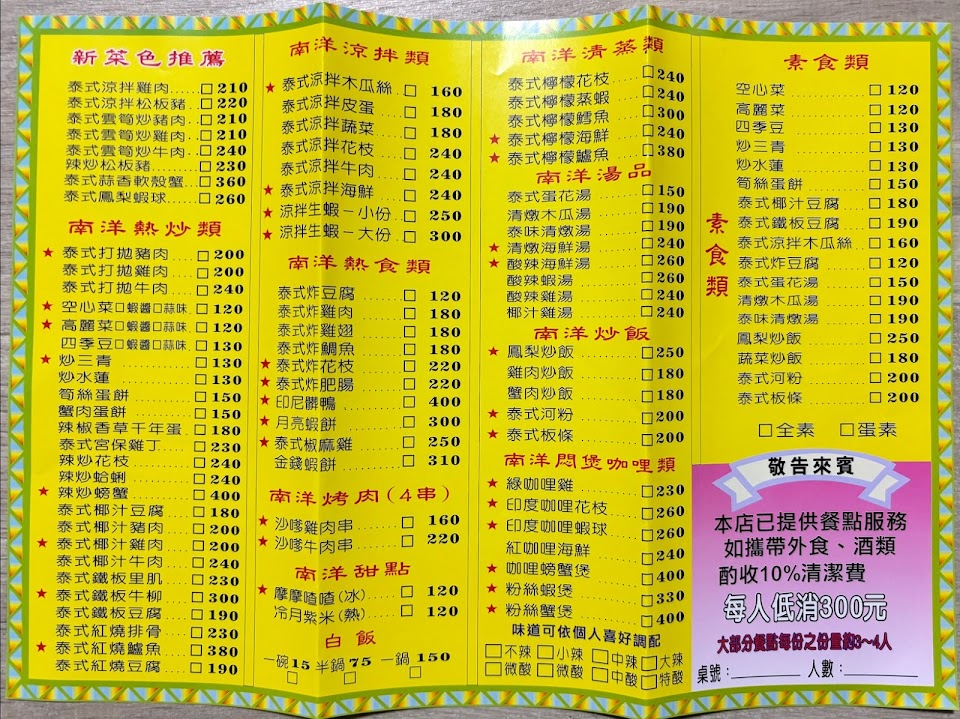 新菜色推薦
泰式涼拌雞肉......□210
泰式涼拌松板豬...□220
泰式雲筍炒豬肉...□210
泰式雲筍炒雞肉...□210
泰式雲筍炒牛肉...□240
辣炒松板豬.........□230
泰式蒜香軟殼蟹...□360
泰式鳳梨蝦球......□260
南洋熱炒類
★ 泰式打拋豬肉......□200
泰式打拋雞肉......□200
泰式打拋牛肉......□240
★ 空心菜□蝦醬□蒜味.□120
★ 高麗菜□蝦醬□蒜味.□120
四季豆□蝦醬□蒜味.□130
★ 炒三青...............□130
炒水蓮...............□130
筍絲蛋餅............□150
蟹肉蛋餅............□150
辣椒香草干年蛋.□180
泰式宮保雞丁......□230
辣炒花枝............□240
辣炒蛤蜊............□240
★ 辣炒螃蟹............□400
泰式椰汁豆腐......□180
泰式椰汁豬肉......□200
★ 泰式椰汁雞肉......□200
泰式椰汁牛肉......□240
泰式鐵板里肌......□230
★ 泰式鐵板牛柳......□300
泰式鐵板豆腐......□190
泰式紅燒排骨......□230
★ 泰式紅燒鱸魚......□380
泰式紅燒豆腐......□190
南洋涼拌類
★ 泰式涼拌木瓜絲.□ 160
泰式涼拌皮蛋......□ 180
泰式涼拌蔬菜......□ 180
泰式涼拌花枝......□ 240
泰式涼拌牛肉......□ 240
★ 泰式涼拌海鮮......□ 240
★ 涼拌生蝦－小份.□ 250
★ 涼拌生蝦－大份.□ 300
南洋熱食類
泰式炸豆腐.........□ 120
泰式炸雞肉.........□ 180
泰式炸雞翅.........□ 180
泰式炸鯛魚.........□ 180
★ 泰式炸花枝.........□ 220
★ 泰式炸肥腸.........□ 220
★ 印尼髒鴨............□ 400
★ 月亮蝦餅............□ 300
★ 泰式椒麻雞.........□ 250
金錢蝦餅............□ 310
南洋烤肉(4串)
★ 沙嗲雞肉串.........□ 160
★ 沙嗲牛肉串.........□ 220
南洋甜點
★ 摩摩喳喳(冰).....□ 120
冷月紫米(熱).....□ 120
白飯
一碗15 半鍋75 一鍋150
□ □ □
南洋清蒸類
泰式檸檬花枝......□240
泰式檸檬蒸蝦......□240
泰式檸檬鱈魚......□300
★ 泰式檸檬海鮮......□240
★ 泰式檸檬鱸魚......□380
南洋湯品
泰式蛋花湯.........□150
清燉木瓜湯.........□190
泰味清燉湯.........□190
★ 清燉海鮮湯.........□240
★ 酸辣海鮮湯.........□260
酸辣蝦湯............□260
酸辣雞湯............□240
椰汁雞湯............□240
南洋炒飯
★ 鳳梨炒飯............□250
雞肉炒飯............□180
蟹肉炒飯............□180
★ 泰式河粉............□200
★ 泰式板條............□200
南洋悶煲咖哩類
★ 綠咖哩雞............□230
★ 印度咖哩花枝......□260
★ 印度咖哩蝦球......□260
紅咖哩海鮮.........□240
★ 咖哩螃蟹煲.........□400
★ 粉絲蝦煲............□330
★ 粉絲蟹煲............□400
味道可依個人喜好調配
□不辣 □小辣 □中辣 □大辣
□微酸 □微酸 □中酸 □特酸
素食類
素食類
空心菜...............□120
高麗菜...............□120
四季豆...............□130
炒三青...............□130
炒水蓮...............□130
筍絲蛋餅............□150
泰式椰汁豆腐......□180
泰式鐵板豆腐......□190
泰式涼拌木瓜絲.□160
泰式炸豆腐.........□120
泰式蛋花湯.........□150
清燉木瓜湯.........□190
泰味清燉湯.........□190
鳳梨炒飯............□250
蔬菜炒飯............□180
泰式河粉............□200
泰式板條............□200
□全素 □蛋素
敬告來賓
本店已提供餐點服務
如攜帶外食、酒類
酌收10%清潔費
每人低消300元
大部分餐點每份之份量約3～4人
桌號：________ 人數：________